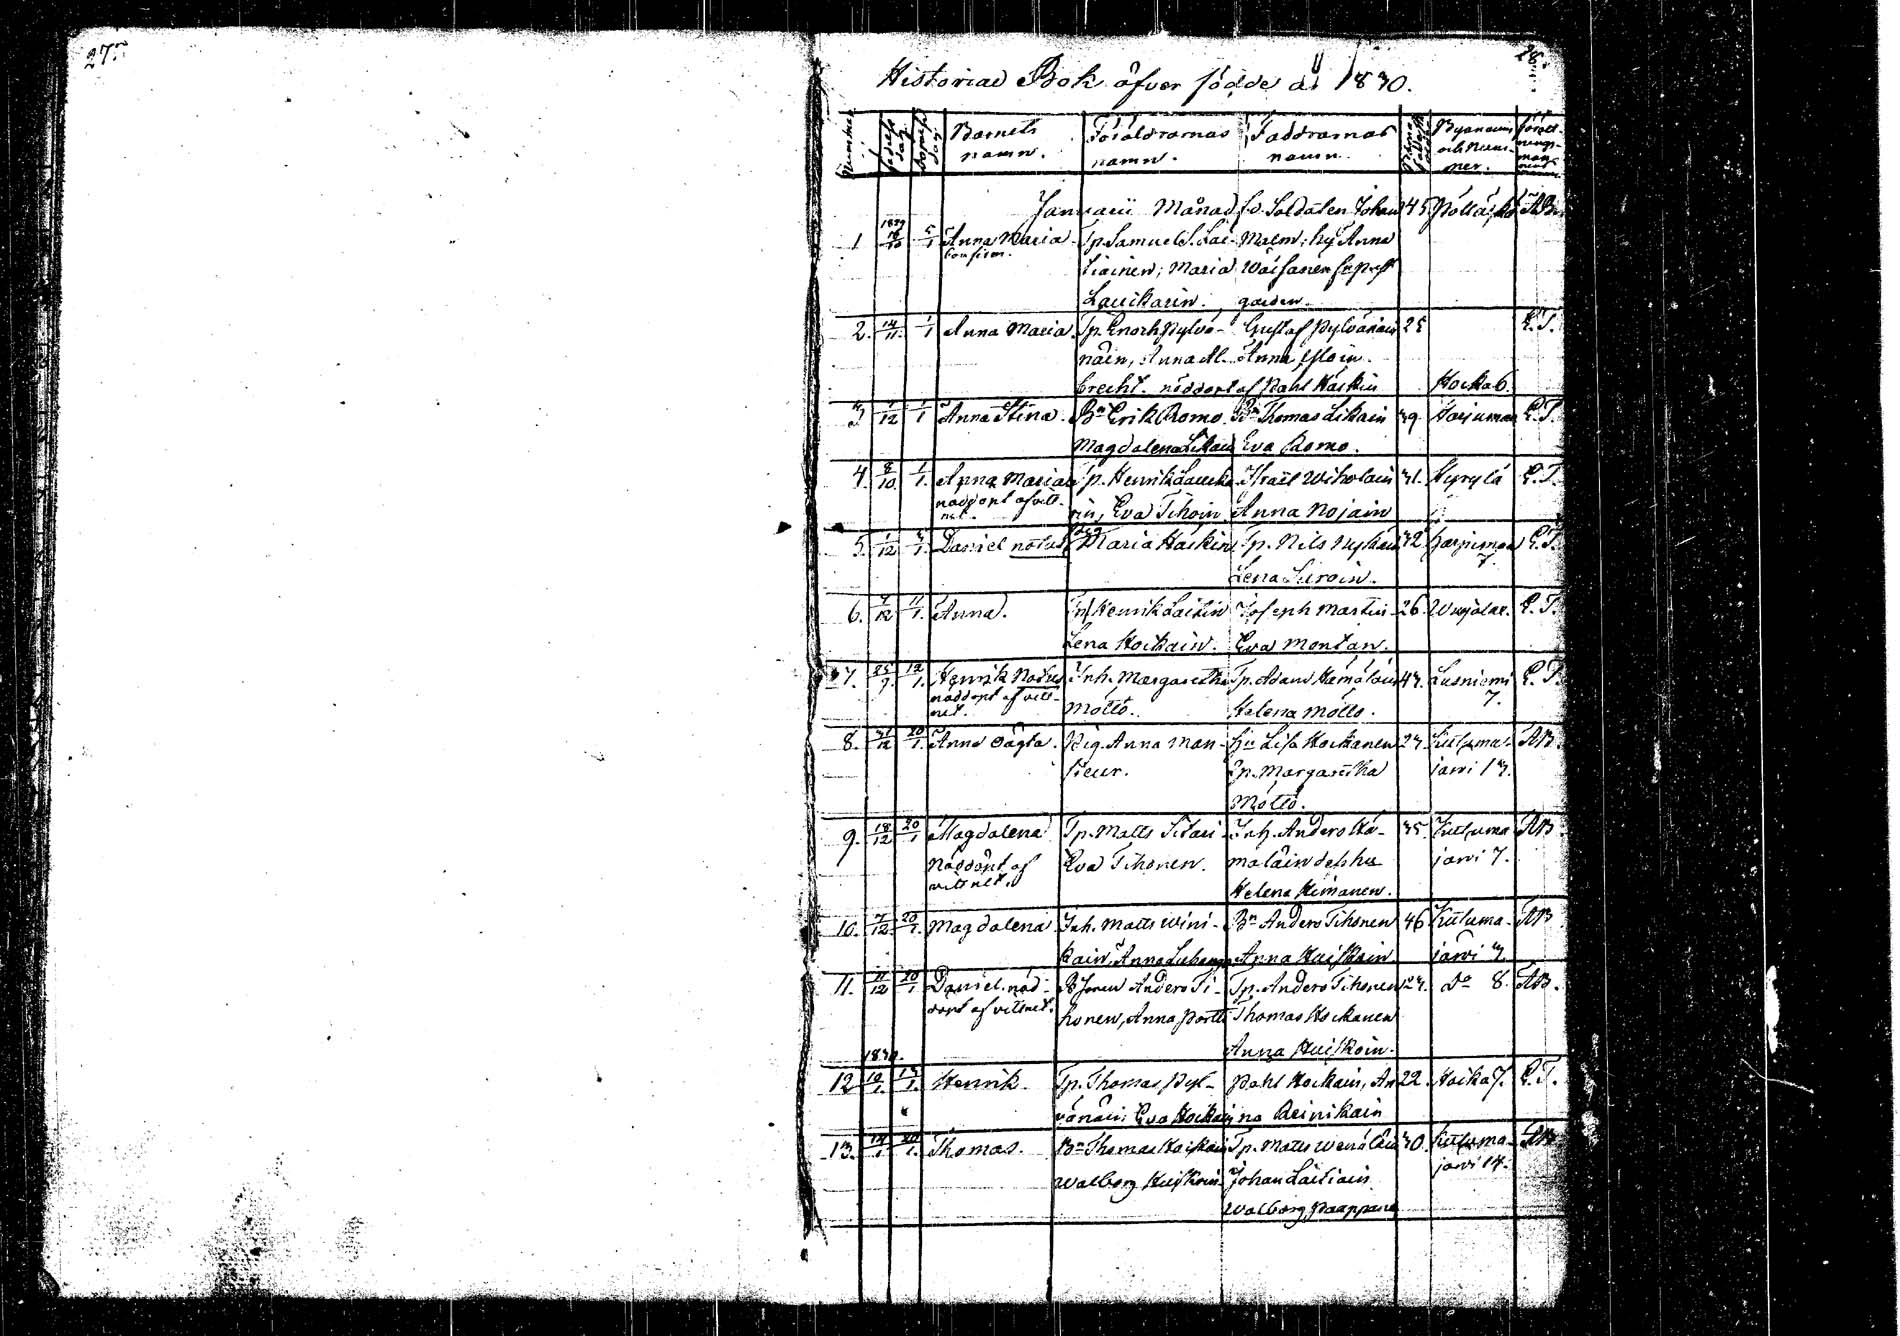 275
28.
Historiae Bok öfver födde år 1830.
Nummer
födelse dag
Döpelse dag
Barnets namn.
Föräldrarnas namn.
Faddrarnas namn.
Byanamn och Nummer.
Januarii Månad
1829
1. 5/1 Anna Maria
Tp. Samuel S. Lai-
tiainen; Maria
Lauikain.
fd. Soldaten Johan
Malm, hu Anna
Wäisänen fr. Prest
gården.
45 AB.
2. 14/11 1/1 Anna Maria.
Tp. Enoch Pylvä-
näin, Anna Al-
brecht. nöddöpt af Pahl Häskin
Gustaf Pylvänäin
Anna
25 Kocka 6. P. T.
3 7/12 1/1 Anna Stina.
Bn Erik Romo
Magdalena Likain
Bn Thomas Likain
Eva Romo.
39 Harjumaa P. T.
4. 8/10 1/1. Anna Maria
nöddöpt af vitt-
net.
Tp. Henrik Laucka-
rin, Eva Tihoin
Israël Wiholain
Anna Nojain
31. Hyrylä P. T.
5. 1/12 Daniel notus
Pig. Maria Häskin
Tp. Nils Nykäin
Lena Suroin.
32 Harjumaa 7. P. T.
6. 11/1. Anna.
Inh Henrik Laitin
Lena Hockain.
Joseph Martin
Eva Montan.
26. Wuojalax. P. T.
7. 25/9. 12/1. Henrik Nothus
nöddöpt af vitt-
net.
Inh. Margaretha
Mötto.
Tp. Adam Hämäläin
Helena Mötto.
43. Lusniemi 7. P. T.
8. 31/12 20/1. Anna oägta.
Pig. Anna Mon-
sieur.
Hu Lisa Hockanen
Tp. Margaretha
Mötto.
23. Kutuma-
jarvi 13. AB.
9. 18/12 20/1 Magdalena
Nöddöpt af
vittnet.
Tp. Matts Sitari
Eva Tihonen.
Inh. Anders Hä-
mäläin dess hu
Helena Himanen.
35. Kutuma
jarvi 7. AB.
10. 7/12 20/1. Magdalena
Inh. Matts Wini-
kain, Anna
Bn Anders Tihonen
Anna Huiskain
46 Kutuma-
jarvi 3. AB
11. 11/12 20/1 Daniel. nöd-
döpt af vittnet.
Bsonen Anders Ti-
honen, Anna Portti
Tp. Anders Tihonen
Thomas Hockanen
Anna Huiskoin.
23. Do 8. AB.
1830.
12 10/1. 17/1. Henrik.
Tp. Thomas Pyl-
vänäin; Eva Hockain
Pahl Hockain, An
na Reinikain
22. Hocka 7. P. T.
13. 14/1 20/1. Thomas.
Bn Thomas Huiskain
Walborg Huiskoin
Tp. Matts Wenäläin
Johan Laitiain
Walborg Paappana
30. Kutuma-
jarvi 14. AB